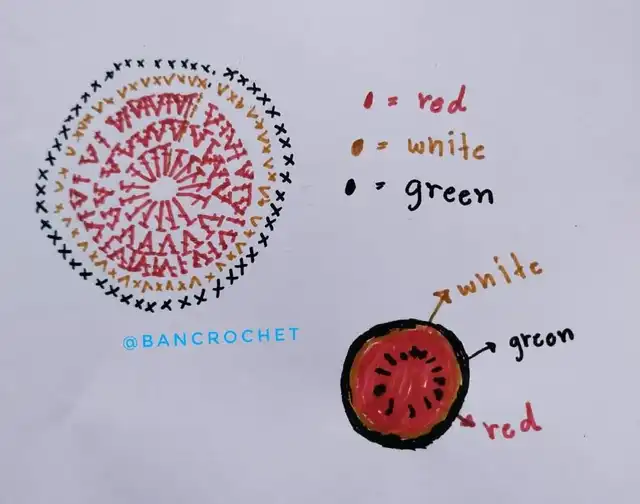 = red
= white
= green
white
green
red
@BANCROCHET